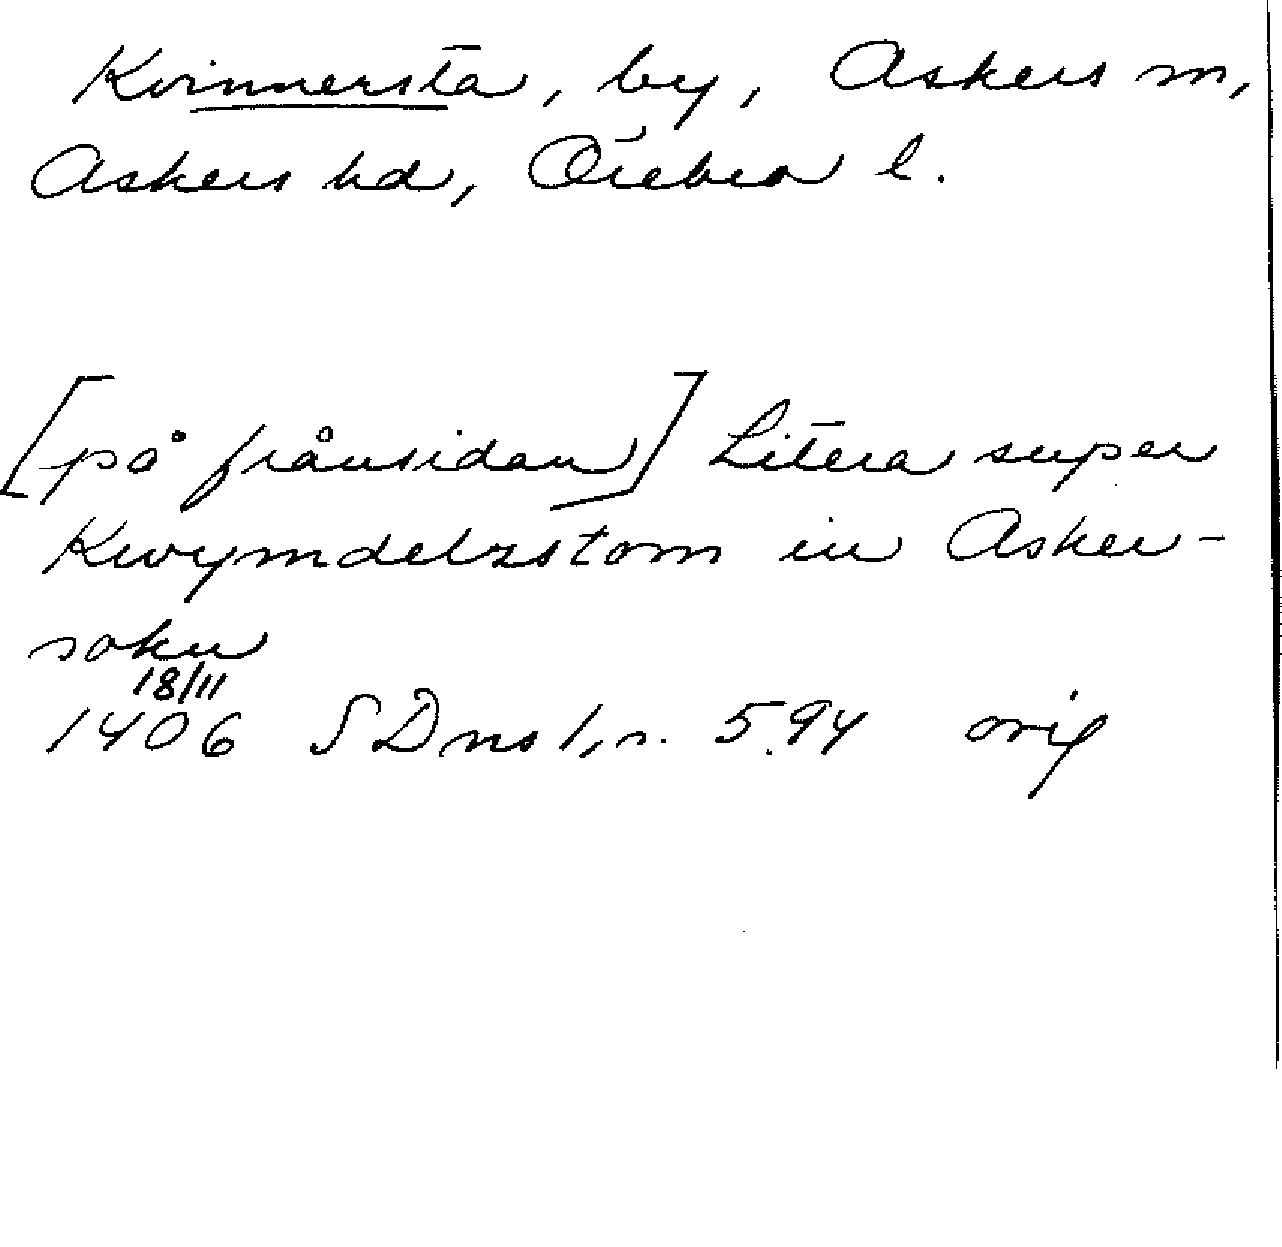 Kvinnersta, by, Askers sn,
Askers hd, Örebro l.
[på frånsidan] Litera super
Kwymdelzstom in Asker-
sokn
18/11
1406 SDns 1, s. 594 orig